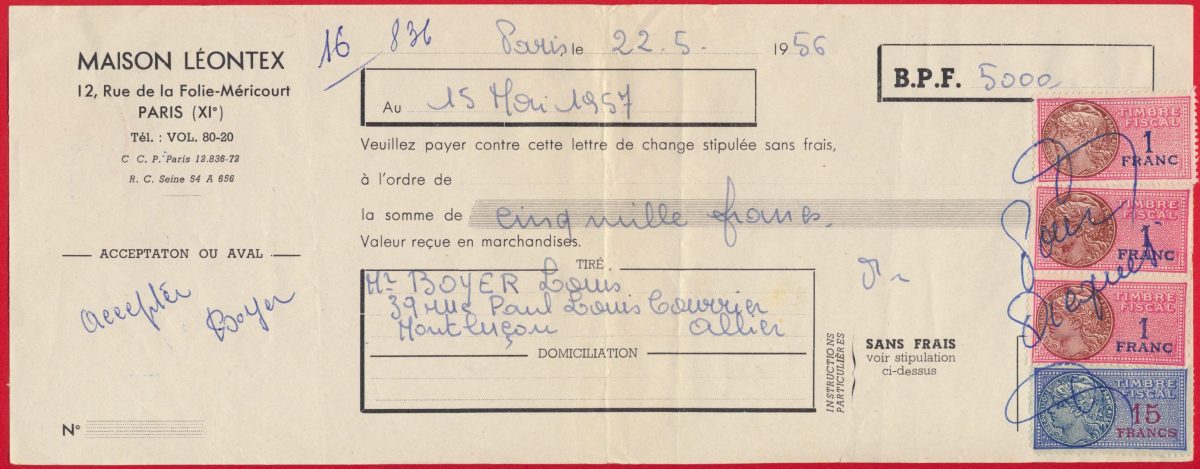 MAISON LÉONTEX
12, Rue de la Folie-Méricourt
PARIS (XIe)
Tél. : VOL. 80-20
C C. P. Paris 12.836-72
R. C. Seine 54 A 656
ACCEPTATON OU AVAL
accepter
Boyer
No
16 836
Paris, le 22.5. 1956
B.P.F. 5000
Au 15 Mai 1957
Veuillez payer contre cette lettre de change stipulée sans frais,
à l'ordre de
la somme de cinq mille francs.
Valeur reçue en marchandises.
TIRÉ
Mr BOYER Louis
39 rue Paul Louis Courrier
Montluçon Allier
DOMICILIATION
INSTRUCTIONS
PARTICULIÈRES
SANS FRAIS
voir stipulation
ci-dessus
TIMBRE
FISCAL
1
FRANC
TIMBRE
FISCAL
1
FRANC
TIMBRE
FISCAL
1
FRANC
TIMBRE
FISCAL
15
FRANCS